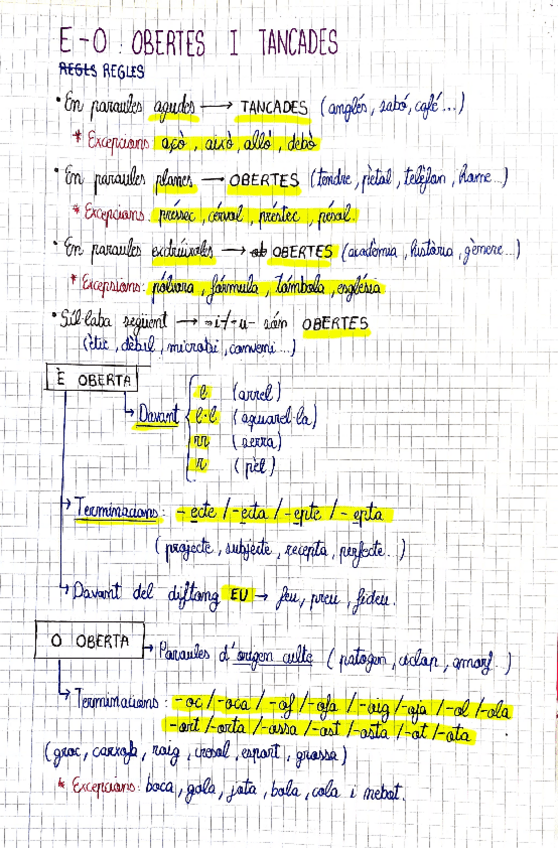 E-O : OBERTES I TANCADES
REGLS REGLES
• En paraules agudes → TANCADES (anglés, sabó, café...)
* Excepcions: açò, això, allò, debò
• En paraules planes → OBERTES (tendre, pètal, telèfon, home...)
* Excepcions: préssec, cérvol, préstec, pésol.
• En paraules esdrúixoles → ob OBERTES (acadèmia, història, gènere...)
* Excepsions: pólvora, fórmula, tómbola, església
• Síl·laba següent → -i-/-u- són OBERTES
(ètic, dèbil, microbi, conveni...)
È OBERTA
→ Davant
l (arrel)
l·l (aquarel·la)
rr (serra)
r (pèl)
→ Terminacions: -ecte / -ecta / -epte / -epta
(projecte, subjecte, recepta, perfecte...)
→ Davant del diftong EU → feu, preu, fideu.
O OBERTA
→ Paraules d'origen culte (patogen, ciclop, amorf...)
→ Terminacions: -oc / -oca / -of / -ofa / -oig / -oja / -ol / -ola
-ort / -orta / -ossa / -ost / -osta / -ot / -ota
(groc, carxofa, roig, crosol, esport, grossa)
* Excepcions: boca, gola, jota, bola, cola i nebot.